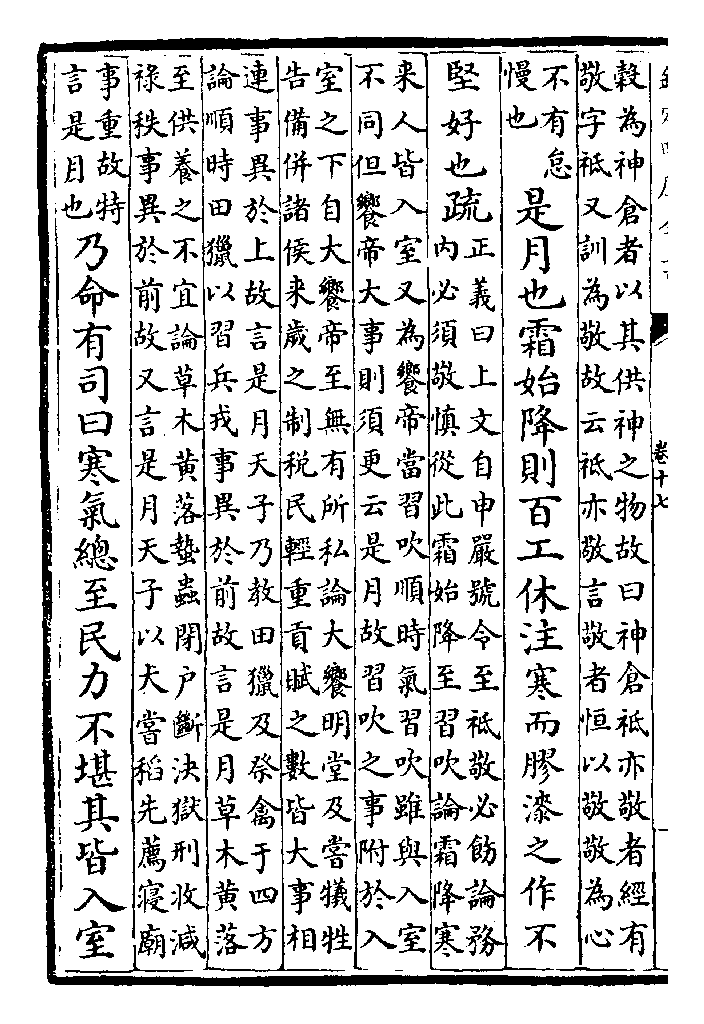 卷十七
穀為神倉者以其供神之物故曰神倉祗亦敬者經有
敬字祗又訓為敬故云祗亦敬言敬者恒以敬敬為心
不有怠
慢也
是月也霜始降則百工休注寒而膠漆之作不
堅好也疏
正義曰上文自申嚴號令至祗敬必飭論務
内必須敬慎從此霜始降至習吹論霜降寒
来人皆入室又為饗帝當習吹順時氣習吹雖與入室
不同但饗帝大事則須更云是月故習吹之事附於入
室之下自大饗帝至無有所私論大饗明堂及嘗犧牲
告備併諸侯来歲之制税民輕重貢賦之數皆大事相
連事異於上故言是月天子乃教田獵及祭禽于四方
論順時田獵以習兵戎事異於前故言是月草木黄落
至供養之不宜論草木黄落蟄蟲閉户斷決獄刑收減
祿秩事異於前故又言是月天子以犬嘗稻先薦寢廟
事重故特
言是月也
乃命有司曰寒氣總至民力不堪其皆入室